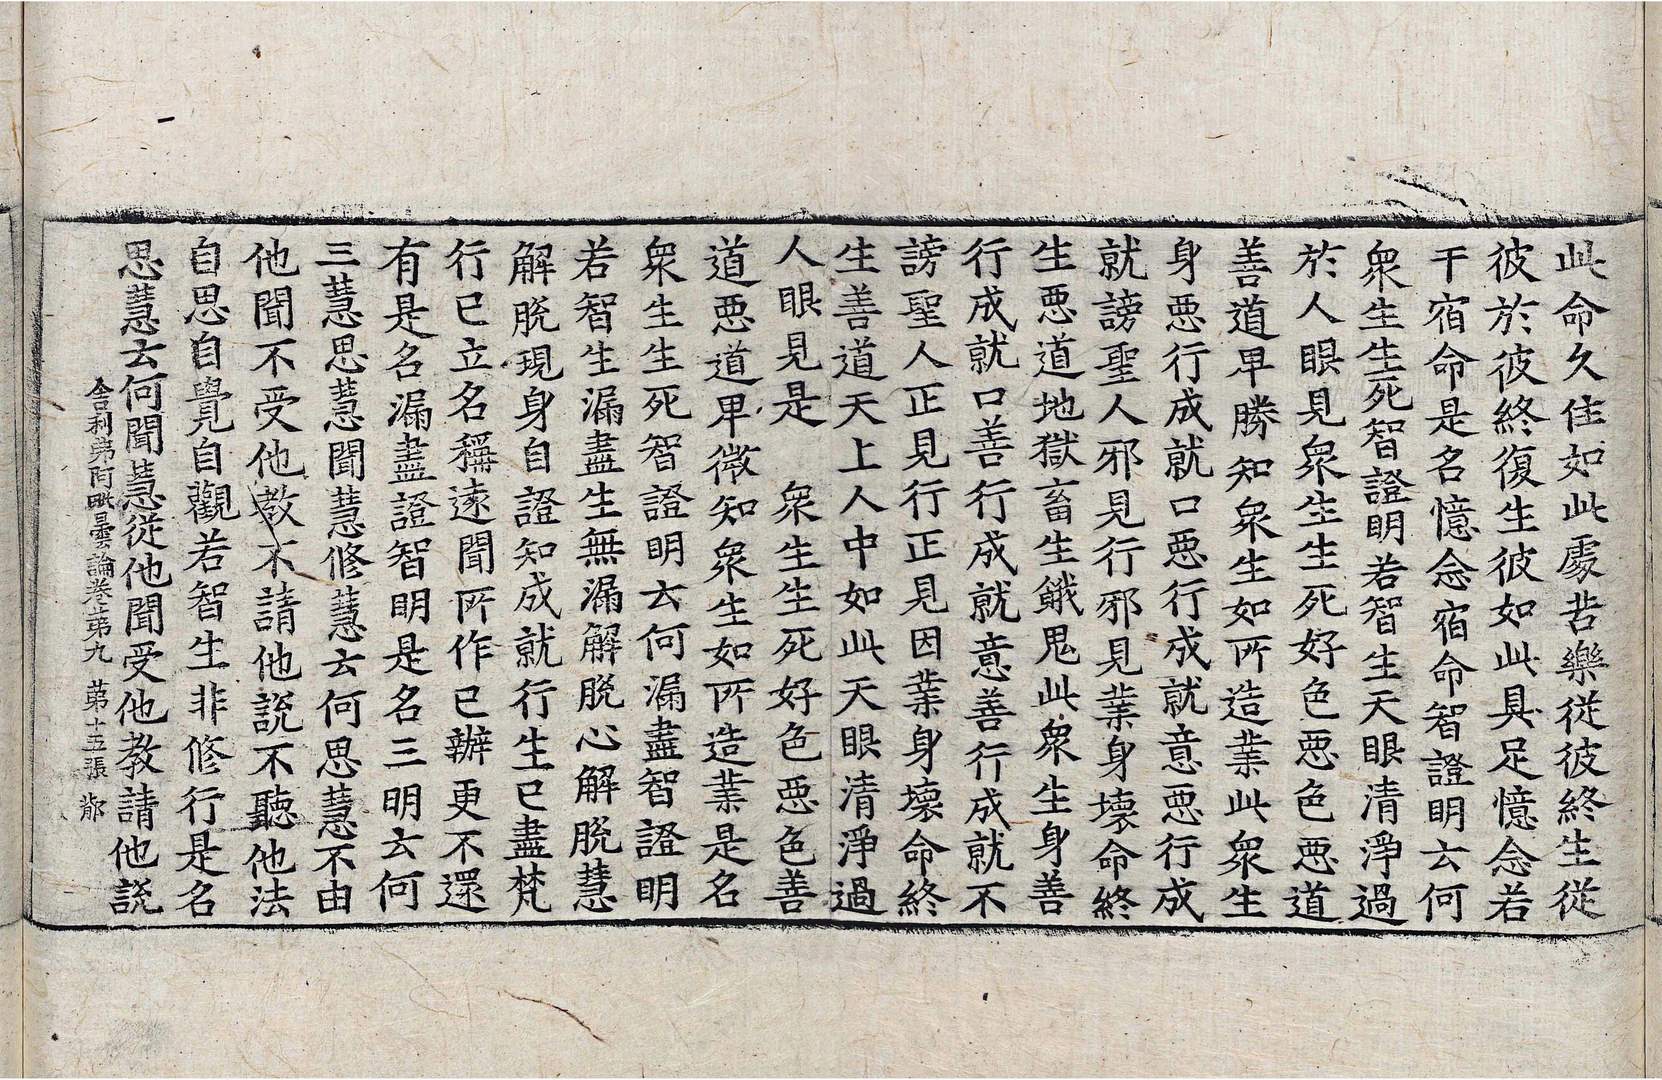 此命久住如此處苦樂從彼終生從
彼於彼終復生彼如此具足憶念若
干宿命是名憶念宿命智證明云何
衆生生死智證明若智生天眼清淨過
於人眼見衆生生死好色惡色惡道
善道卑勝知衆生如所造業此衆生
身惡行成就口惡行成就意惡行成
就謗聖人邪見行邪見業身壞命終
生惡道地獄畜生餓鬼此衆生身善
行成就口善行成就意善行成就不
謗聖人正見行正見因業身壞命終
生善道天上人中如此天眼清淨過
人眼見是衆生生死好色惡色善
道惡道卑微知衆生如所造業是名
衆生生死智證明云何漏盡智證明
若智生漏盡生無漏解脫心解脫慧
解脫現身自證知成就行生已盡梵
行已立名稱遠聞所作已辦更不還
有是名漏盡證智明是名三明云何
三慧思慧聞慧修慧云何思慧不由
他聞不受他教不請他說不聽他法
自思自覺自觀若智生非修行是名
思慧云何聞慧從他聞受他教請他說
舍利弗阿毗曇論卷第九 第十五張